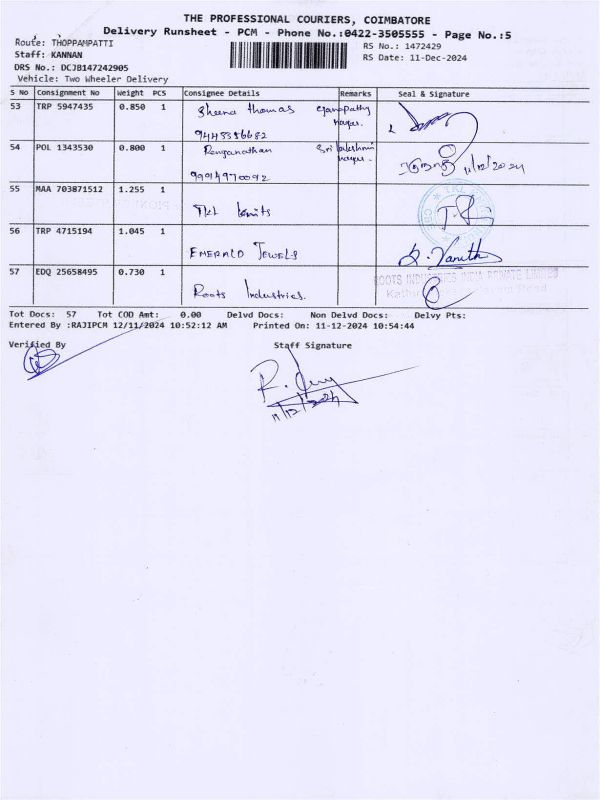 THE PROFESSIONAL COURIERS, COIMBATORE
Delivery Runsheet - PCM - Phone No.:0422-3505555 - Page No.:5
Route: THOPPAMPATTI RS No.: 1472429
Staff: KANNAN RS Date: 11-Dec-2024
DRS No.: DCJB147242905
Vehicle: Two Wheeler Delivery
S No Consignment No Weight PCS Consignee Details Remarks Seal & Signature
53 TRP 5947435 0.850 1 Sheena thomas Ganapathy
nagar.
54 POL 1343530 0.800 1 Renganathan Sri lakshmi
nagar. 11/12/2024
9994970092
55 MAA 703871512 1.255 1
TKL knits
56 TRP 4715194 1.045 1
EMERALD JEWELS
57 EDQ 25658495 0.730 1 ROOTS INDUSTRIES INDIA PRIVATE LIMITED
Roots Industries.
Tot Docs: 57 Tot COD Amt: 0.00 Delvd Docs: Non Delvd Docs: Delvy Pts:
Entered By :RAJIPCM 12/11/2024 10:52:12 AM Printed On: 11-12-2024 10:54:44
Verified By Staff Signature
11/12/2024